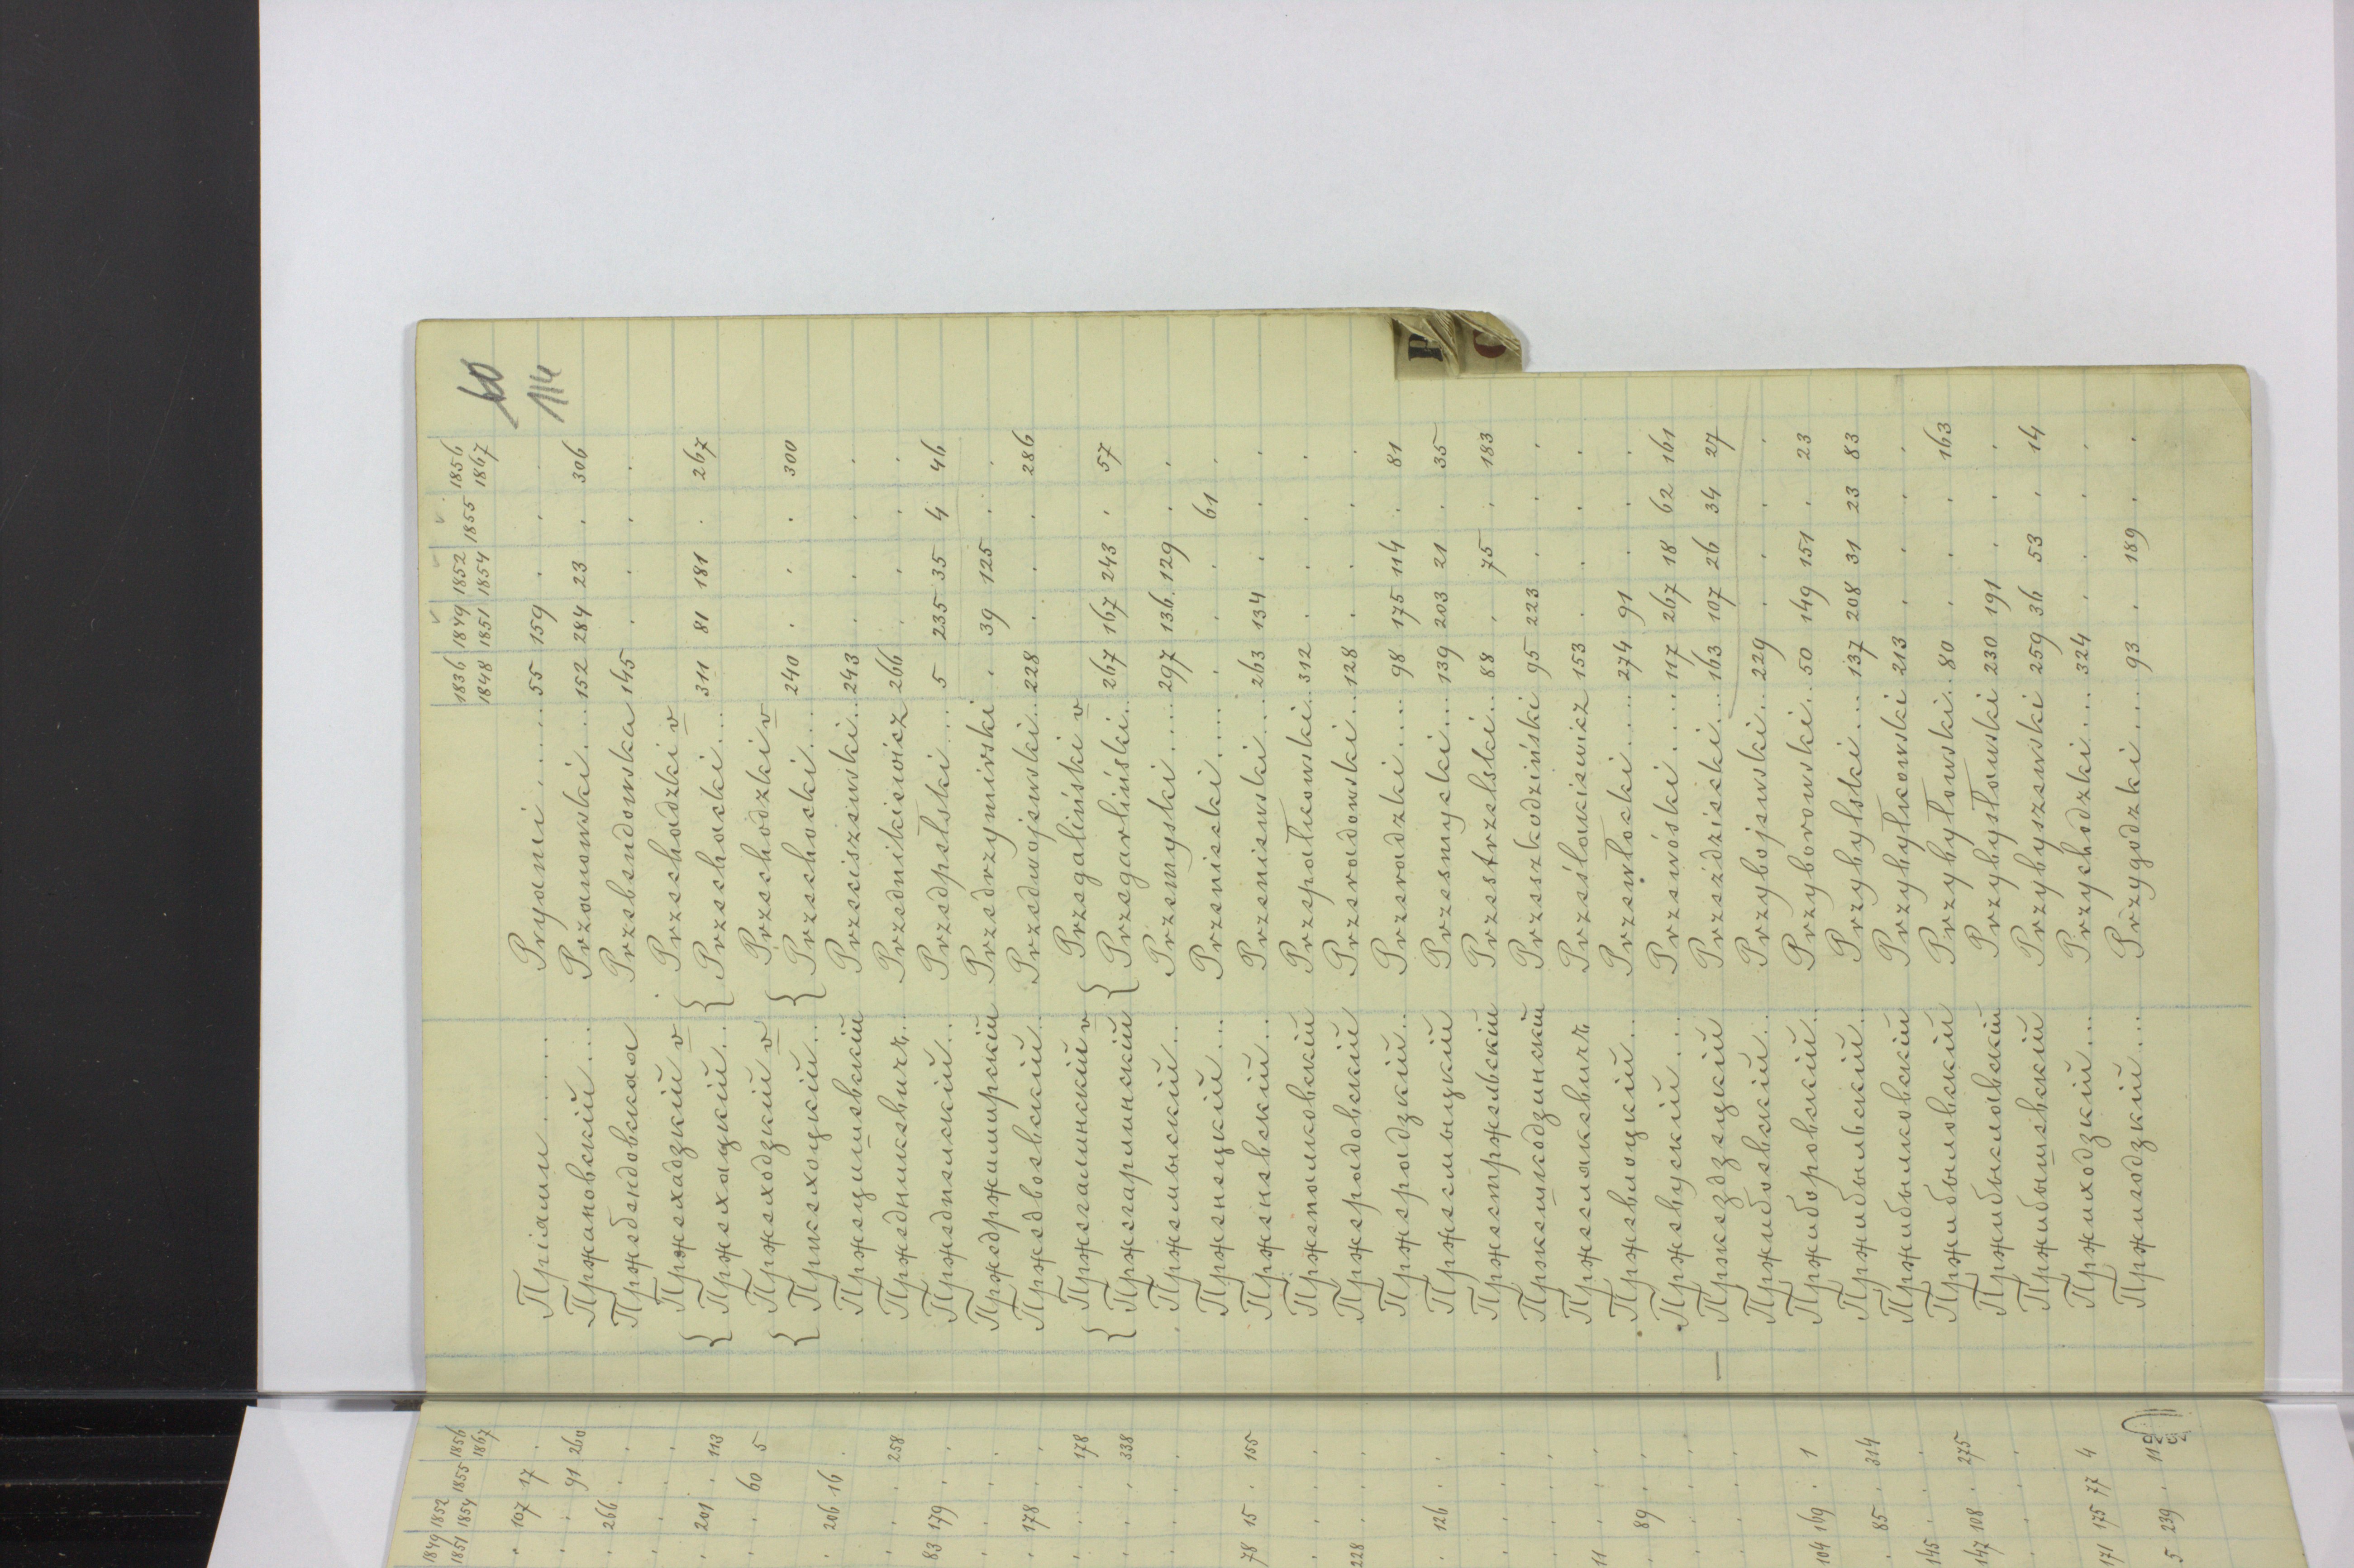 60
114
1836 1849 1852 1855 1856
1848 1851 1854 1867
Пріями Pryami 55 159 . . .
Пржановскій Przanowski 152 284 23 . 306
Пржебендовская Przebendowska 145 . . . .
Пржехадзкій v Przechadzki v
Пржехацкій Przechacki 311 81 181 . 267
Пржеходзкій v Przechodzki v
Пржехоцкій Przechocki 240 . . . 300
Пржецишевскій Przeciszewski 243 . . . .
Пржедникевичъ Przednikiewicz 266 . . . .
Пржедпелскій Przedpełski 5 235 35 4 46
Пржедржимирскій Przedrzymirski . 39 125 . .
Пржедвоевскій Przedwojewski 228 . . . 286
Пржегалинскій v Przegaliński v
Пржегарлинскій Przegarliński 267 167 243 . 57
Пржемыскій Przemyski 297 136 129 . .
Прженецкій Przeniecki . . . 61 .
Пржневскій Przeniewski 263 134 . . .
Пржепалковскій Przepałkowski 312 . . . .
Пржерадовскій Przeradowski 128 . . . .
Пржерадзкій Przeradzki 98 175 114 . 81
Пржесмыцкій Przesmycki 139 203 21 . 35
Пржестржельскій Przestrzelski 88 . 75 . 183
Пржешкодзинскій Przeszkodziński 95 223 . . .
Пржеслакевичъ Prześlakiewicz 153 . . . .
Пржевлоцкій Przewłocki 274 91 . . .
Пржевускій Przewóski 117 267 18 62 161
Пржездзецкій Przeździecki 163 107 26 34 27
Пржибоевскій Przybojewski 229 . . . .
Пржиборовскій Przyborowski 50 149 151 . 23
Пржибыльскій Przybylski 137 208 31 23 83
Пржибылковскій Przybyłkowski 213 . . . .
Пржибыловскій Przybyłowski 80 . . . 163
Пржибыславскій Przybysławski 230 191 . . .
Пржибышевскій Przybyszewski 259 36 53 . 14
Пржиходзкій Przychodzki 324 . . . .
Пржигодзкій Przygodzki 93 . 189 . .
1849 1852 1855 1856
1851 1854 1867
. 107 17 .
. . 91 260
. 266 . .
. . . .
. 201 . 113
. . 60 5
. 206 16 .
. . . 258
83 179 . .
. . . .
. 178 . .
. . . 178
. . . 338
. . .
78 15 . 155
. . . .
228 . . .
. 126 . .
. . . .
. . . .
11 . . .
. 89 . .
. . . .
. . . .
104 169 . 1
. 85 . 314
145 . . .
147 108 . 275
. . . .
171 175 77 4
5 239 . 112